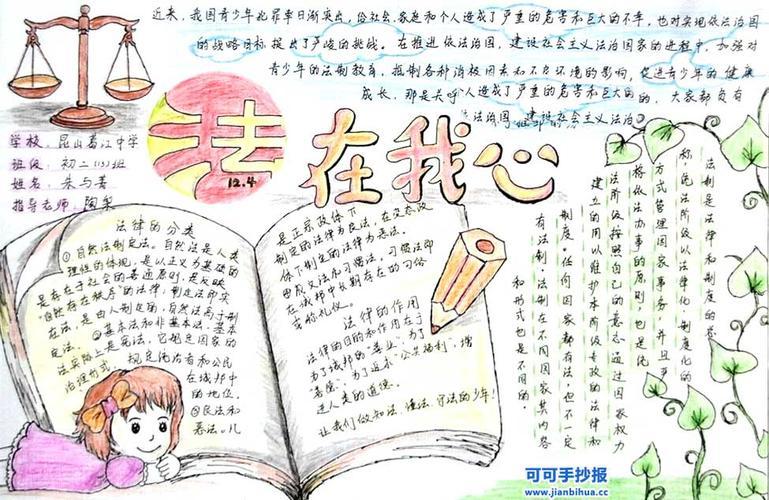 近来,我国青少年犯罪率日渐突出,给社会、家庭和个人造成了严重的危害和巨大的不幸,也对实现依法治国
的战略目标提出了严峻的挑战。在推进依法治国,建设社会主义法治国家的进程中,加强对
青少年的法制教育,抵制各种消极因素和不良环境的影响,促进青少年的健康
成长,那是关乎人造成了严重的危害和巨大的的,大家都负有
依法治国,建设社会主义法治
学校:昆山葛江中学
班级:初二(13)班
姓名:朱与善
指导老师:陶
法
12.4
在我心
法律的分类
①自然法制定法。自然法是人类
理性的体现,是以正义为基础的
是存在于社会的普通原则,是反映
“自然存在秩序”的法律;制定法即实
在法,是由人制定的,自然法高于制
定法。②基本法和非基本法。基本
法实际上是宪法,它规定国家的
治理形式,规定统治者和公民
在城邦中
的地位。
③良法和
恶法。凡
是正宗政体下
制定的法律为良法,在变态政
体下制定的法律为恶法。
④成文法和习惯法。习惯法即
在城邦中长期存在的习俗
或称礼仪。
法律的作用
法律的目的和作用在于
为了城邦的“善业”,为了
“善德”,为了正义“公共福利”,增
进人类的道德。
让我们做知法、懂法、守法的少年!
法制是法律和制度的总
称。统治阶级以法律化、制度化的
方式管理国家事务,并且严
格依法办事的原则,也是统
治阶级按照自己的意志通过国家权力
建立的用以维护本阶级专政的法律和
制度。任何国家都有法,但不一定
有法制。法制在不同国家其内容
和形式也是不同的。
可可手抄报
www.jianbihua.cc